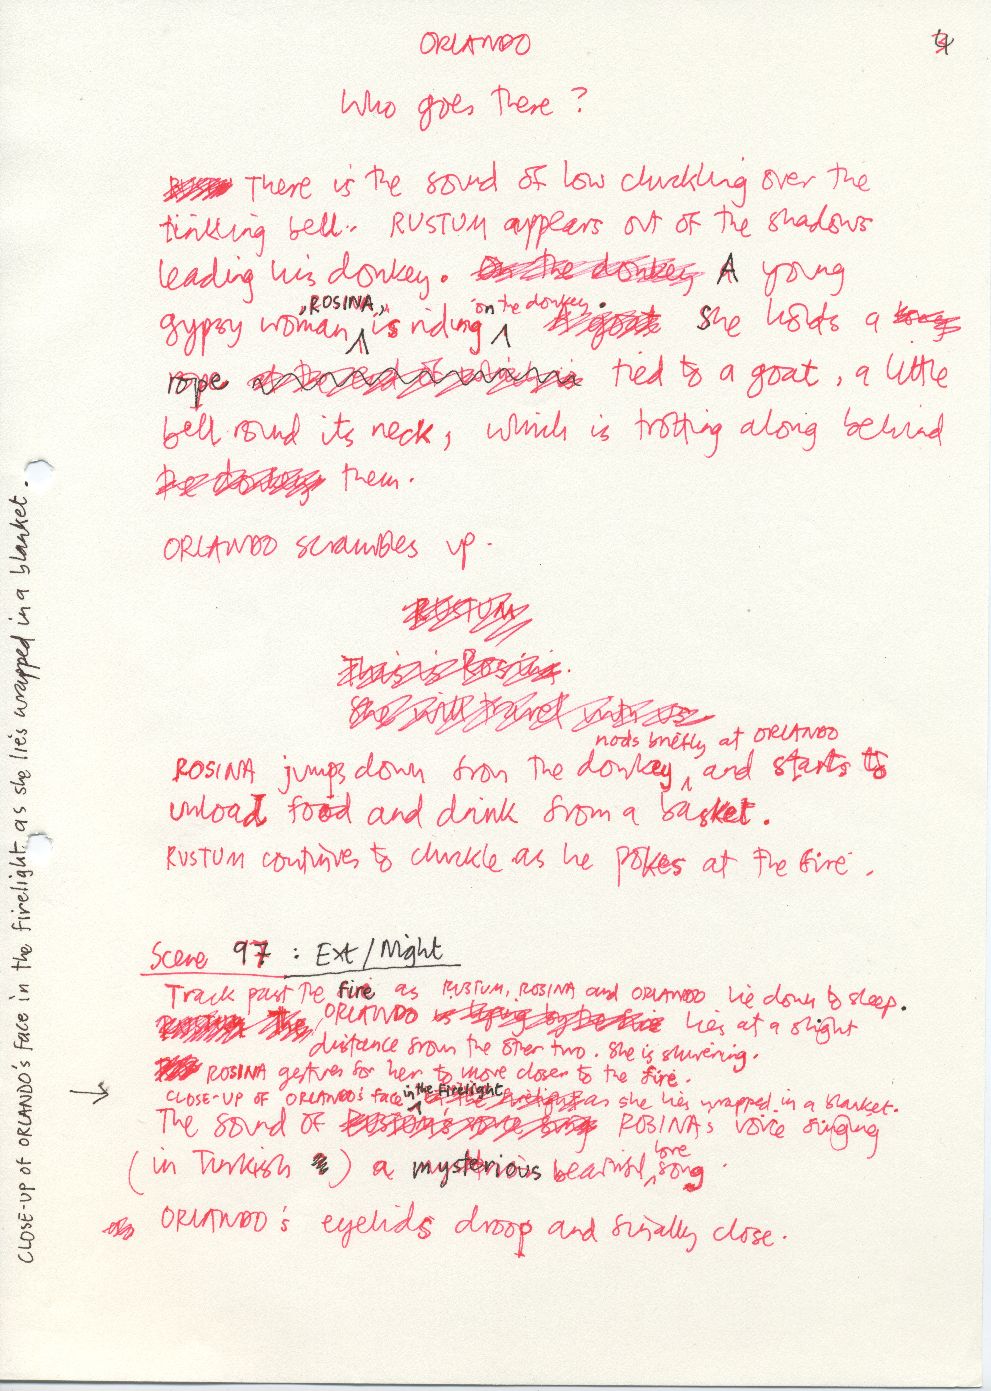 ORLANDO
4
Who goes there?
There is the sound of low chuckling over the
tinkling bell.. RUSTUM appears out of the shadows
leading his donkey. On the donkey A young
gypsy woman, ROSINA, is riding on the donkey. A goat She holds a
rope tied to a goat, a little
bell round its neck, which is trotting along behind
the donkey them.
ORLANDO scrambles up.
RUSTUM
This is Rosina.
She will travel with us
ROSINA jumps down from the donkey, nods briefly at ORLANDO and starts to
unload food and drink from a basket.
RUSTUM continues to chuckle as he pokes at the fire.
Scene 97 : Ext/Night
Track past the fire as RUSTUM, ROSINA and ORLANDO lie down to sleep.
ORLANDO is lying by the fire lies at a slight
distance from the other two. She is shivering.
ROSINA gestures for her to move closer to the fire.
CLOSE-UP OF ORLANDO's face in the firelight as she lies wrapped in a blanket.
The sound of ROSINA's voice singing
(in Turkish) a mysterious beautiful love song.
ORLANDO's eyelids droop and finally close.
CLOSE-UP OF ORLANDO's FACE in the firelight as she lies wrapped in a blanket.